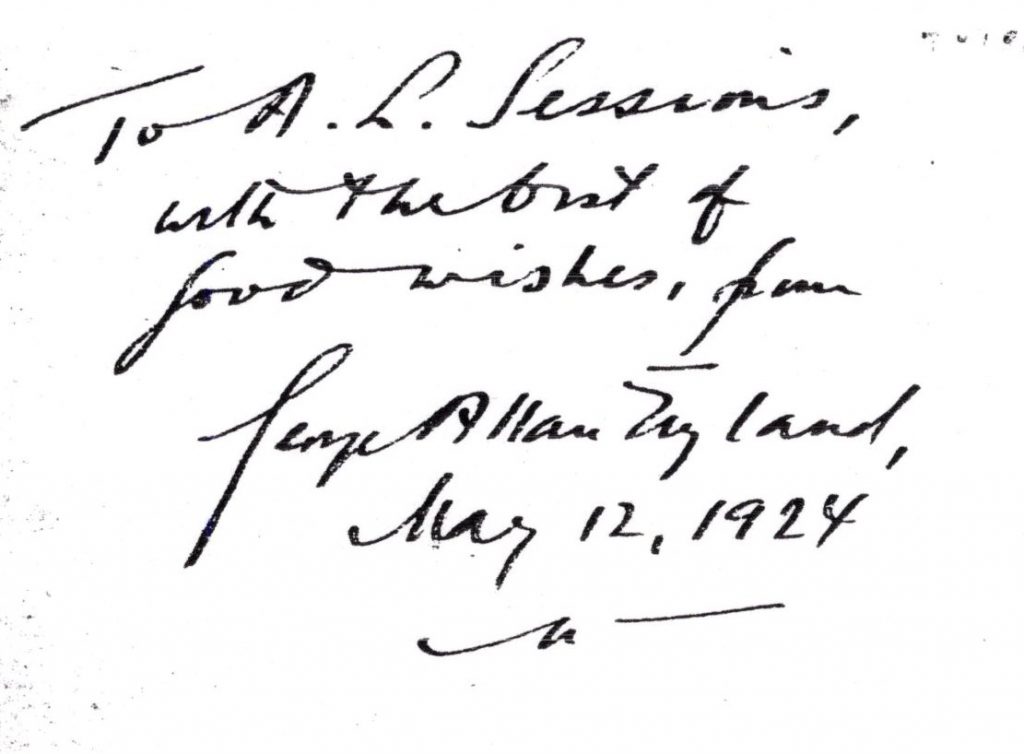 To A. L. Sessions,
with the best of
good wishes, from
George Allan England,
May 12, 1924